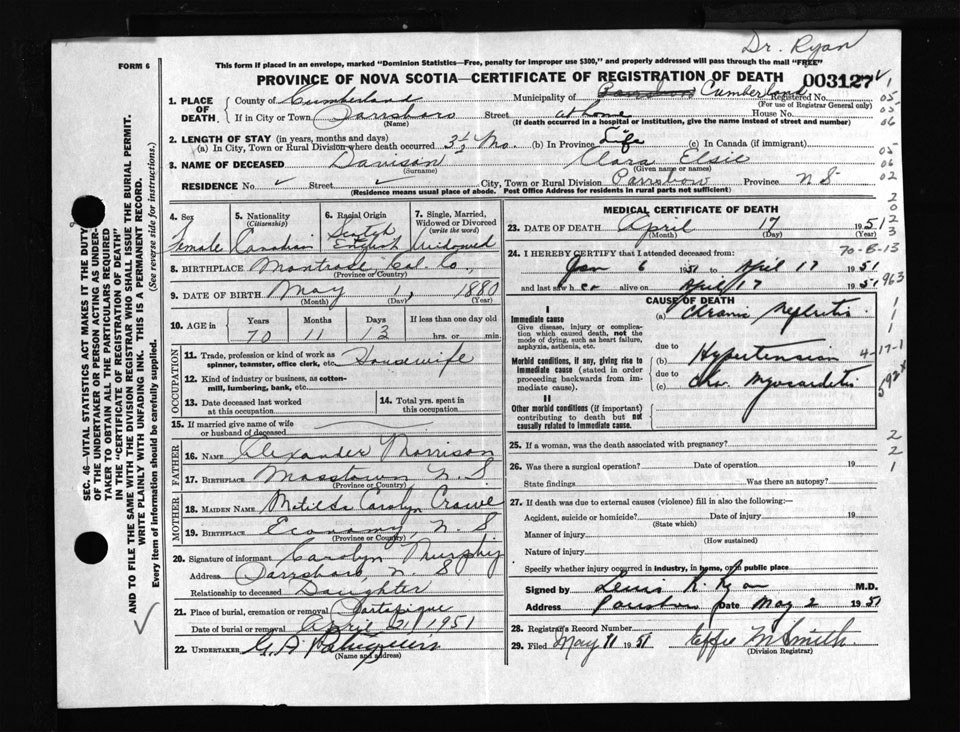 Dr. Ryan
FORM 6
This form if placed in an envelope, marked "Dominion Statistics—Free, penalty for improper use $300," and properly addressed will pass through the mail "FREE"
PROVINCE OF NOVA SCOTIA—CERTIFICATE OF REGISTRATION OF DEATH 003127
1. PLACE OF DEATH. County of Cumberland Municipality of Parrsboro Cumberland Registered No.
(For use of Registrar General only)
If in City or Town Parrsboro Street at home House No.
(Name) (If death occurred in a hospital or institution, give the name instead of street and number)
2. LENGTH OF STAY (in years, months and days)
(a) In City, Town or Rural Division where death occurred 3½ Mo. (b) In Province Life (c) In Canada (if immigrant)
3. NAME OF DECEASED Davison Clara Elsie
(Surname) (Given name or names)
RESIDENCE No. ✓ Street ✓ City, Town or Rural Division Parrsboro Province N S
(Residence means usual place of abode. Post Office Address for residents in rural parts not sufficient)
4. Sex Female
5. Nationality (Citizenship) Canadian
6. Racial Origin Scotch English
7. Single, Married, Widowed or Divorced (write the word) Widowed
8. BIRTHPLACE Montrose, Col. Co.,
(Province or Country)
9. DATE OF BIRTH May 1, 1880
(Month) (Day) (Year)
10. AGE in Years Months Days If less than one day old
70 11 13 hrs. or min.
OCCUPATION
11. Trade, profession or kind of work as spinner, teamster, office clerk, etc. Housewife
12. Kind of industry or business, as cotton-mill, lumbering, bank, etc.
13. Date deceased last worked at this occupation
14. Total yrs. spent in this occupation
15. If married give name of wife or husband of deceased
FATHER
16. NAME Alexander Morrison
17. BIRTHPLACE Masstown N. S.
(Province or Country)
MOTHER
18. MAIDEN NAME Matilda Carolyn Crowe
19. BIRTHPLACE Economy, N. S
(Province or Country)
20. Signature of informant Carolyn Murphy
Address Parrsboro, N. S
Relationship to deceased Daughter
21. Place of burial, cremation or removal Portapique
Date of burial or removal April 21 1951
22. UNDERTAKER G. A.
(Name and address)
MEDICAL CERTIFICATE OF DEATH
23. DATE OF DEATH April 17 1951
(Month) (Day) (Year)
24. I HEREBY CERTIFY that I attended deceased from:
Jan 6 1951 to April 17 1951
and last saw her alive on April 17 1951
CAUSE OF DEATH
I
Immediate cause
Give disease, injury or complication which caused death, not the mode of dying, such as heart failure, asphyxia, asthenia, etc.
(a) Chronic Nephritis
due to
Morbid conditions, if any, giving rise to immediate cause (stated in order proceeding backwards from immediate cause).
(b) Hypertension
due to
(c) Chr. Myocarditis
II
Other morbid conditions (if important) contributing to death but not causally related to immediate cause.
25. If a woman, was the death associated with pregnancy?
26. Was there a surgical operation? Date of operation 19
State findings Was there an autopsy?
27. If death was due to external causes (violence) fill in also the following:—
Accident, suicide or homicide? Date of injury 19
(State which)
Manner of injury
(How sustained)
Nature of injury
Specify whether injury occurred in industry, in home, or in public place
Signed by Lewis R. Ryan M.D.
Address Parrsboro Date May 2 1951
28. Registrar's Record Number
29. Filed May 11 1951 Effie M Smith
(Division Registrar)
SEC. 46—VITAL STATISTICS ACT MAKES IT THE DUTY OF THE UNDERTAKER OR PERSON ACTING AS UNDERTAKER TO OBTAIN ALL THE PARTICULARS REQUIRED IN THE "CERTIFICATE OF REGISTRATION OF DEATH" AND TO FILE THE SAME WITH THE DIVISION REGISTRAR WHO SHALL ISSUE THE BURIAL PERMIT.
WRITE PLAINLY WITH UNFADING INK. THIS IS A PERMANENT RECORD.
Every item of information should be carefully supplied. (See reverse side for instructions.)
1
05
05
06
05
06
02
2
0
2
3
70-8-13
963
1
1
1
4-17-1
592x
2
2
1